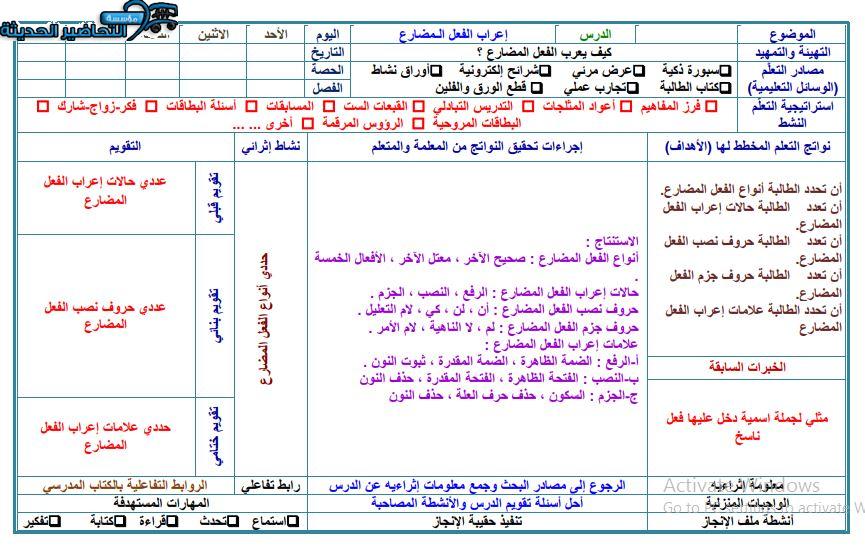 مؤسسة
التحاضير الحديثة
الموضوع الدرس إعراب الفعل المضارع اليوم الأحد الاثنين
التهيئة والتمهيد كيف يعرب الفعل المضارع ؟ التاريخ
مصادر التعلم (الوسائل التعليمية) ❑سبورة ذكية ❑عرض مرئي ❑شرائح إلكترونية ❑أوراق نشاط الحصة
❑كتاب الطالبة ❑تجارب عملي ❑ قطع الورق والفلين الفصل
استراتيجية التعلم النشط □ فرز المفاهيم □ أعواد المثلجات □ التدريس التبادلي □ القبعات الست □ المسابقات □ أسئلة البطاقات □ فكر-زواج-شارك □
البطاقات المروحية □ الرؤوس المرقمة □ أخرى ... ...
نواتج التعلم المخطط لها (الأهداف) إجراءات تحقيق النواتج من المعلمة والمتعلم نشاط إثرائي التقويم
أن تحدد الطالبة أنواع الفعل المضارع.
أن تعدد الطالبة حالات إعراب الفعل
المضارع.
أن تعدد الطالبة حروف نصب الفعل
المضارع.
أن تعدد الطالبة حروف جزم الفعل
المضارع.
أن تحدد الطالبة علامات إعراب الفعل
المضارع
الخبرات السابقة
مثلي لجملة اسمية دخل عليها فعل
ناسخ
الاستنتاج :
أنواع الفعل المضارع : صحيح الآخر ، معتل الآخر ، الأفعال الخمسة
.
حالات إعراب الفعل المضارع : الرفع ، النصب ، الجزم .
حروف نصب الفعل المضارع : أن ، لن ، كي ، لام التعليل .
حروف جزم الفعل المضارع : لم ، لا الناهية ، لام الأمر .
علامات إعراب الفعل المضارع :
أ-الرفع : الضمة الظاهرة ، الضمة المقدرة ، ثبوت النون .
ب-النصب : الفتحة الظاهرة ، الفتحة المقدرة ، حذف النون
ج-الجزم : السكون ، حذف حرف العلة ، حذف النون
حددي أنواع الفعل المضارع
تقويم قبلي
عددي حالات إعراب الفعل
المضارع
تقويم بنائي
عددي حروف نصب الفعل
المضارع
تقويم ختامي
حددي علامات إعراب الفعل
المضارع
معلومة إثرائية الرجوع إلى مصادر البحث وجمع معلومات إثراءيه عن الدرس رابط تفاعلي الروابط التفاعلية بالكتاب المدرسي
الواجبات المنزلية أحل أسئلة تقويم الدرس والأنشطة المصاحبة المهارات المستهدفة
أنشطة ملف الإنجاز تنفيذ حقيبة الإنجاز ❑استماع ❑تحدث ❑قراءة ❑كتابة ❑تفكير
Activate Windows
Go to PC settings to activate W